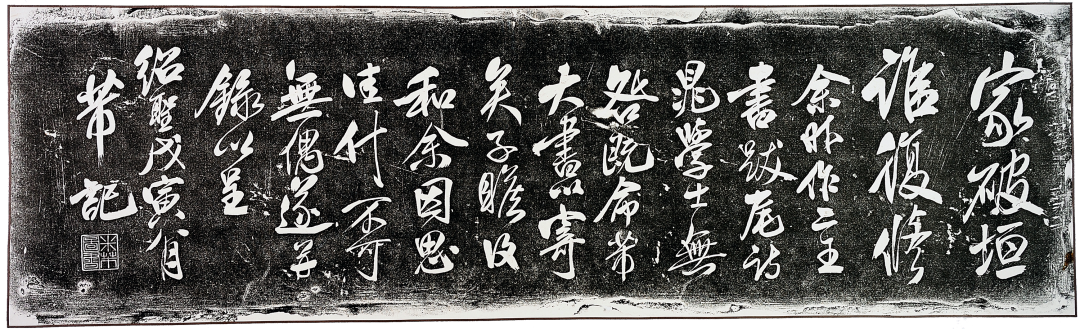 家破垣
誰復修
余昨作二王
書跋尾詩
晁學士無
咎既命芾
大書以寄
矣子瞻後
和余因思
佳什不可
無偶遂并
錄以呈
紹聖戊寅八月
芾記